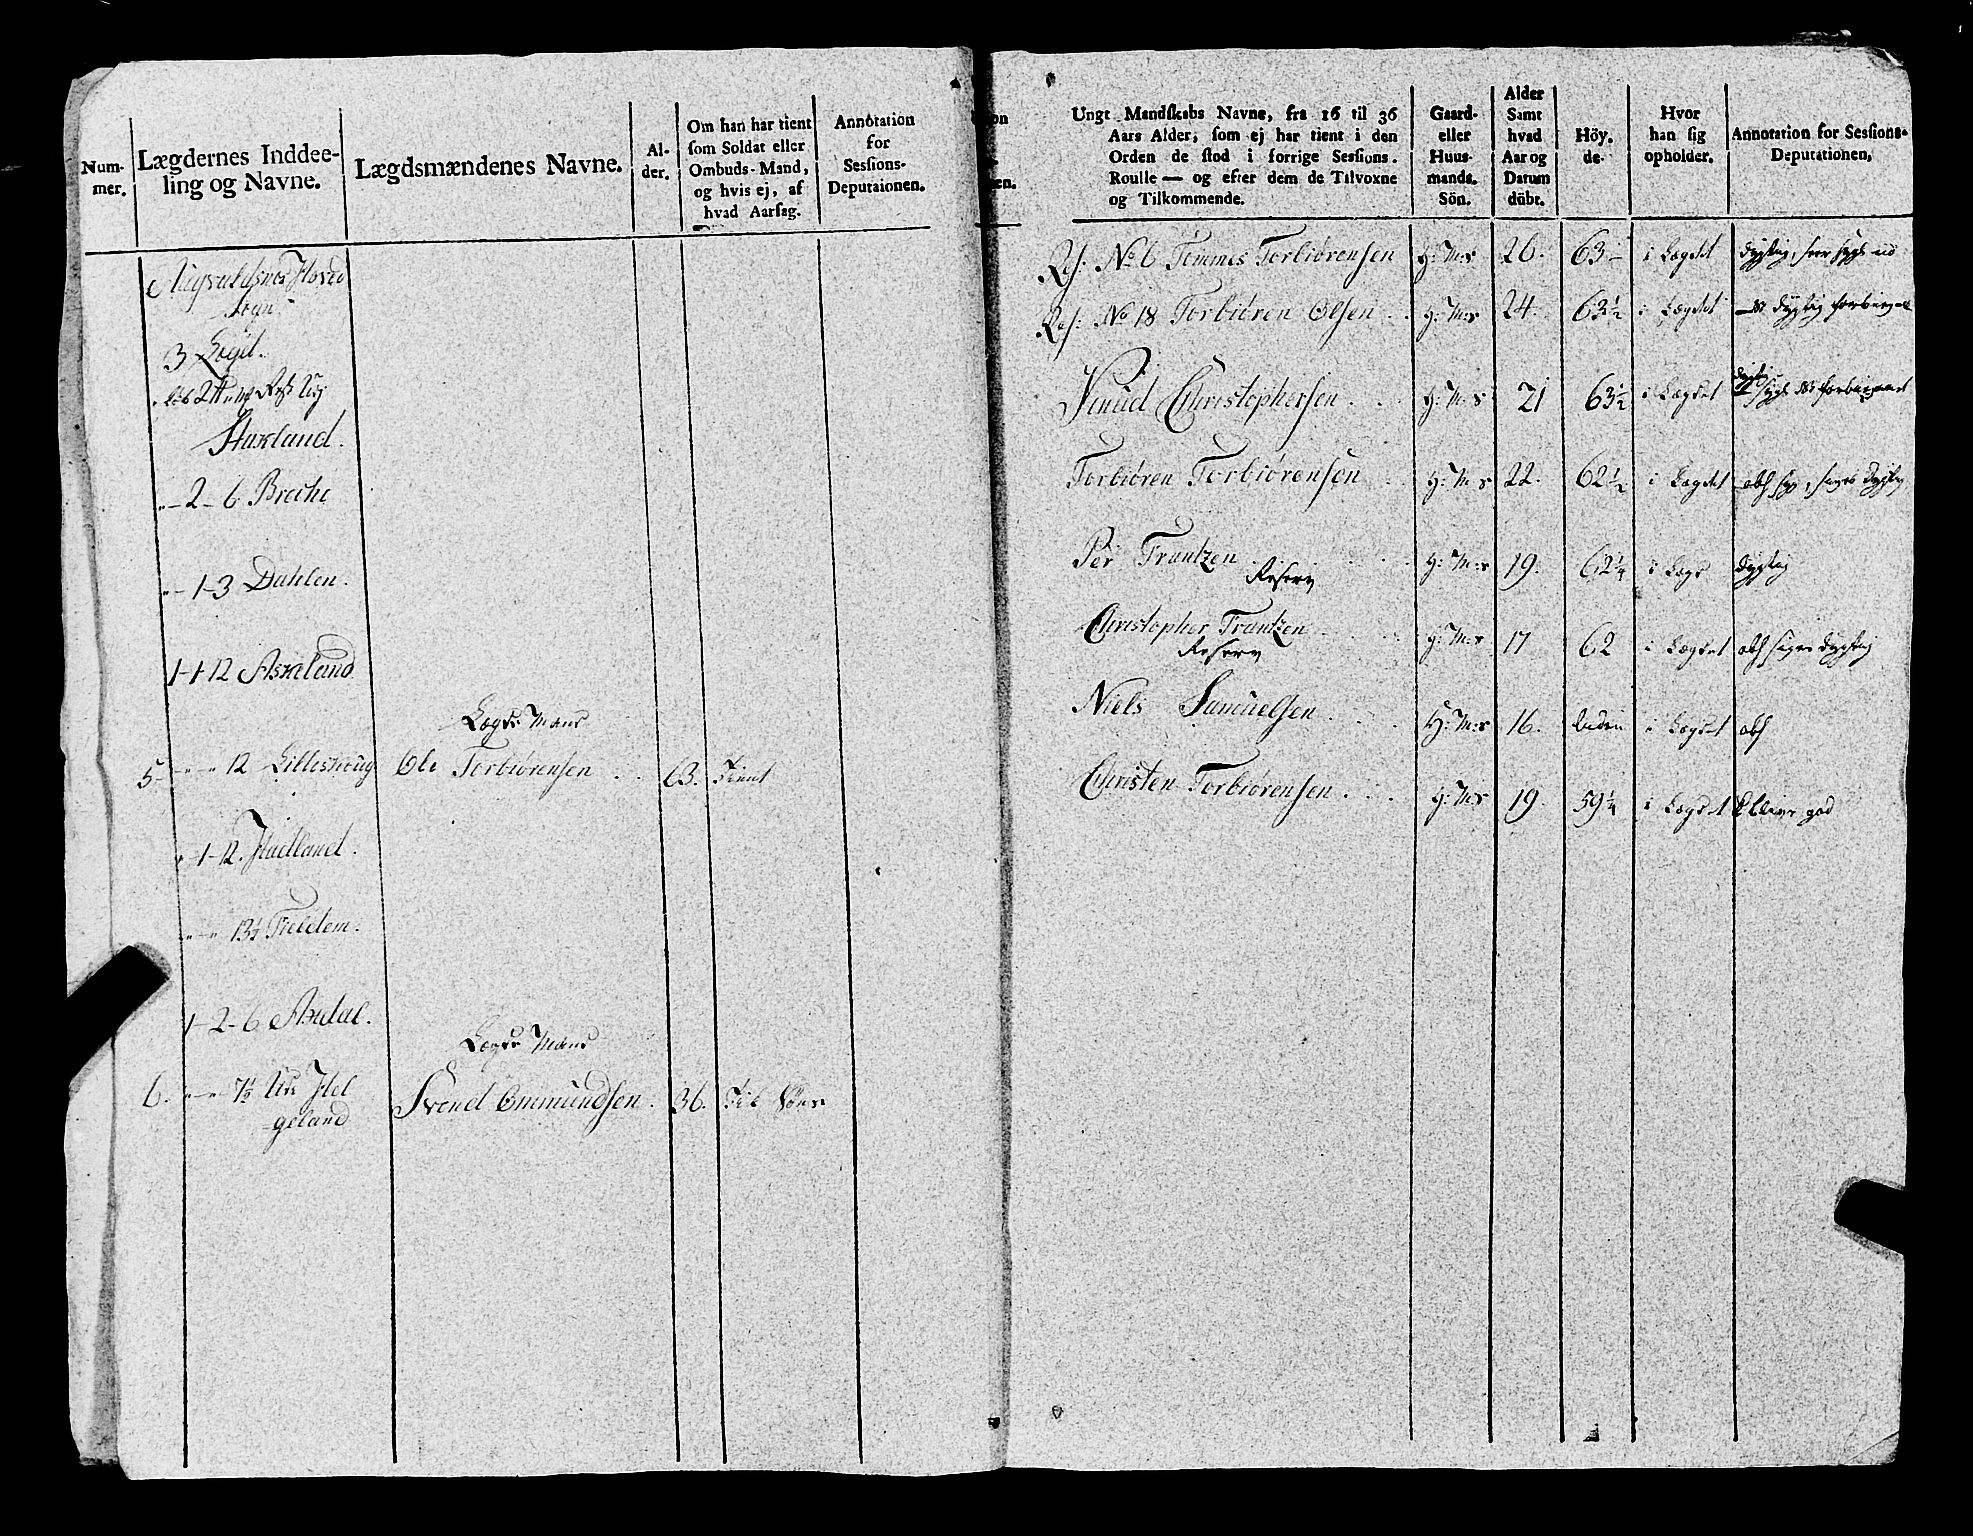 Num-
mer.
Lægdernes Inddee-
ling og Navne.
Lægdsmændenes Navne.
Al-
der.
Om han har tient
som Soldat eller
Ombuds-Mand,
og hvis ej, af
hvad Aarsag.
Annotation
for
Sessions-
Deputaionen.
Augvaldsnes Hoved
Sogn
3 Lægd.
Stuxland.
"-2-6 Breche
"-1-3 Dahlen.
1-1-12 Axeland
Lægds Mand
5- "-"-12 Lilleshoug Ole Torbiörensen .. 63. Tient
"-1-12. Hadland.
"-"-13½ Fieldem.
1-2-6 Axdal.
Lægds Mand
6. "-"-7½ Hel
geland
Svend Ommundsen. 36.
on
en.
Ungt Mandskabs Navne, fra 16 til 36
Aars Alder, som ej har tient i den
Orden de stod i forrige Sessions.
Roulle — og efter dem de Tilvoxne
og Tilkommende.
Gaard-
eller
Huus-
mands.
Sön.
Alder
Samt
hvad
Aar og
Datum
döbt.
Höy.
de.
Hvor
han sig
opholder.
Annotation for Sessions-
Deputationen,
Res: No 6 Tommes Torbiörensen G: M:s 26. 63 i Lægdet dygtig,
Res: No 18 Torbiören Olsen .. G: M:s 24. 63½ i Lægdet dygtig forbigaaet
Knud Christophersen ... G: M:s 21 63½ i Lægdet forbigaaet
Torbiören Torbiörensen .. G: M:s 22. 62½ i Lægdet abs syg, siges dygtig
Per Frantzen .... G: M:s 19. 62¼ i Lægd dygtig
Reserv
Christopher Frantzen ... G: M:s 17 62 i Lægdet abs siges dygtig
Reserv
Niels Samuelsen ... G: M:s 16. liden i Lægdet abs
Christen Torbiörensen ... G: M:s 19. 59¼ i Lægdet bliver god